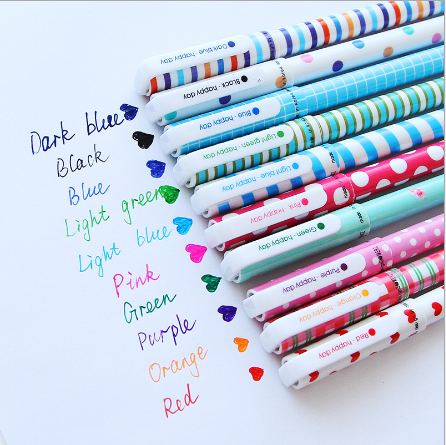 Dark blue
Black
Blue
Light green
Light blue
Pink
Green
Purple
Orange
Red
Dark blue·happy day
Black·happy day
Blue·happy day
Light green·happy day
Light blue·happy day
Pink·happy day
Green·happy day
Purple·happy day
Orange·happy day
Red·happy day